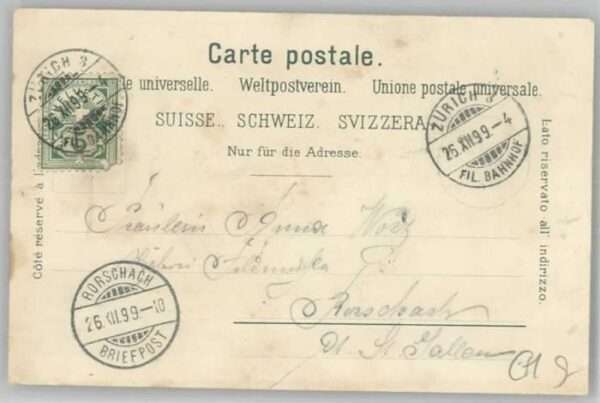 Carte postale.
le universelle. Weltpostverein. Unione postale universale.
SUISSE. SCHWEIZ. SVIZZERA
Nur für die Adresse.
Côté réservé à l'adres
Lato riservato all' indirizzo.
ZÜRICH 3
26.XII.99.-4
FIL. BAHNHOF
ZÜRICH 3
26.XII.99.-4
FIL. BAHNHOF
RORSCHACH
26.XII.99.-10
BRIEFPOST
Fräulein Anna
Rorschach
Ct. St. Gallen